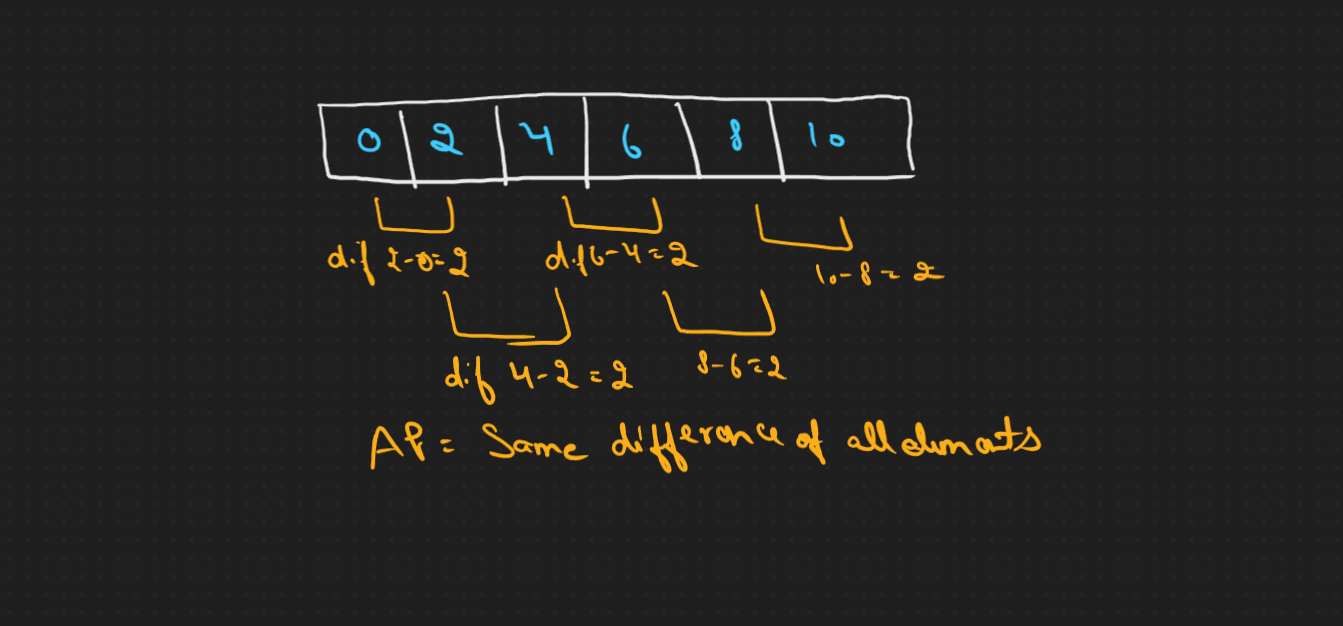 0 2 4 6 8 10
dif 2-0=2 dif 6-4=2 10-8=2
dif 4-2=2 8-6=2
AP = Same difference of all elements